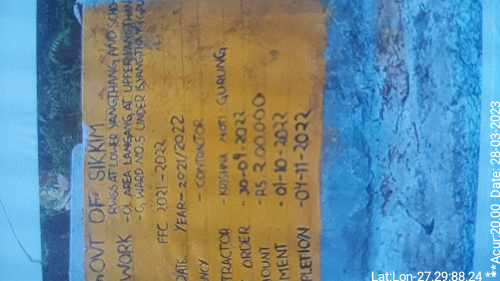 GOVT OF SIKKIM
WORK - RWSS AT LOWER YANGTHANG AND SORD
-OL AREA LANGANG AT UPPER YANGTHANG
-G WARD NO.5 UNDER YANGTHANG
FFC 2021-2022
DATE YEAR-2021/2022
NCY - CONTRACTOR
TRACTOR - KRISHNA MOTI GURUNG
ORDER - 30-09-2022
OUNT - RS 2.00.000
MENT - 01-10-2022
PLETION - 04-11-2022
Lat:Lon-27.29:88.24 ***
*** Acur:20.00 Date: 28-03-2023